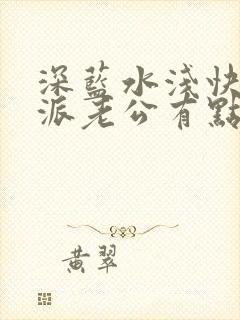 深藍水淺快
派老公有點
黃翠